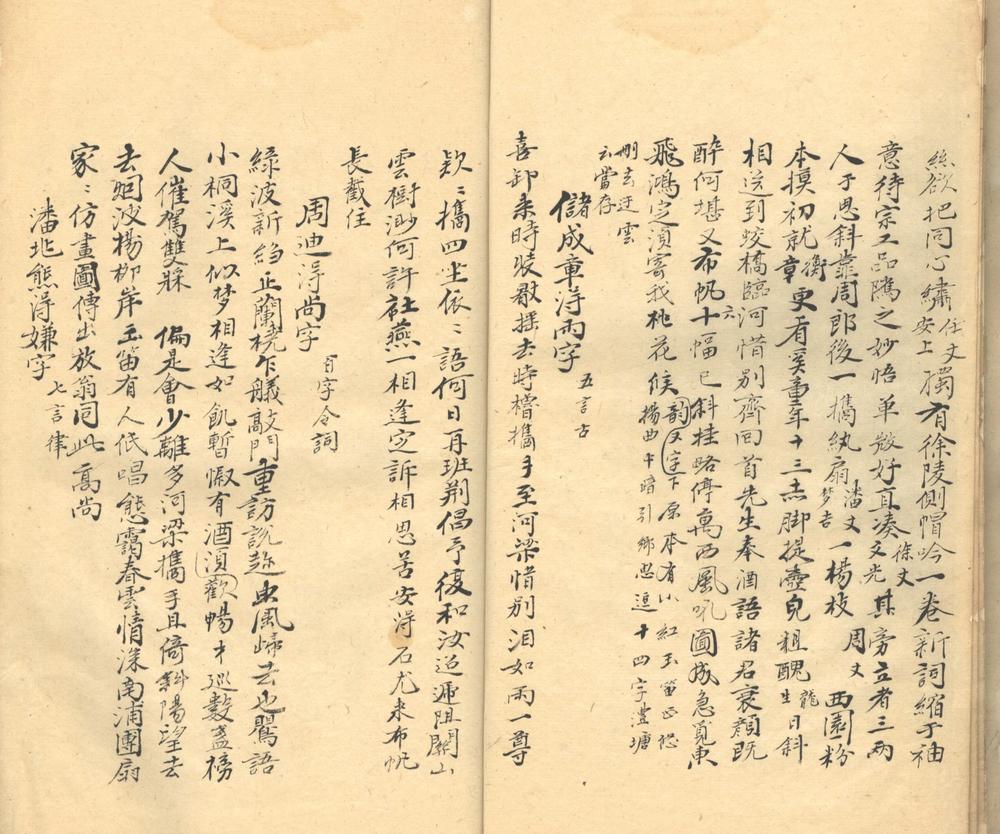 絲欲把同心繡任丈安上獨有徐陵側帽吟一卷新詞縮于袖
意待宗工品隲之妙悟單微好互湊徐丈文光其旁立者三兩
人于思斜靠周郎後一攜紈扇潘丈夢吉一楊枝周丈西園粉
本摸初就章衡更看奚童年十三赤脚提壺皃粗醜龍生日斜
相送到蛟橋臨河惜别齊回首先生奉酒語諸君衰顔既
醉何堪又布帆十六幅已斜挂略停萬西風吼圖成急覓東
飛鴻定須寄我桃花候楊曲中暗引鄉思連十四字澧塘
韻又字下原本有小紅玉笛正悠
刪去迂雲
云當存
儲成章淂雨字五言古
喜卸来時裝敢揺去時櫓攜手至河梁惜别泪如雨一尊
欵:攜四坐依:語何日再班荆倡予復和汝迢遞阻關山
雲樹渺何許社燕一相逢定訴相思苦安淂石尤来布帆
長截住
周迪淂尚字百字令詞
綠波新縐正蘭橈乍艤敲門重訪說趂虫風歸去也鷖語
小桐溪上似梦相逢如飢暫慰有酒須歡暢才巡數盞榜
人催駕雙槳 偏是會少離多河梁攜手且倚斜陽望去
去烟波楊栁岸玉笛有人低唱態靄春雲情深南浦團扇
家:仿畫圖傳出放翁同此高尚
潘兆熊淂嫌字七言律